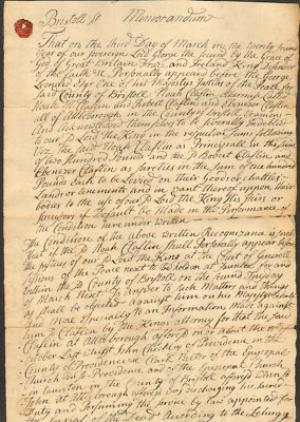 Bristol Ss Memorandum
That on the third Day of March in the twenty
of our Sovereign Lord George the Second by the Grace of
God of Great Britain France and Ireland King Defender
of the Faith &c Personally appeared before me George
Leonard Esqr One of his Majestys Justices of the Peace for
said County of Bristol Noah Claflin
Noah Claflin and Robert Claflin and Ebenezer Claflin
all of Attleborough in the County of Bristol
And Acknowledged themselves to be severally Indebted
to our Sd Lord the King in the respective Sums following
Viz. the said Noah Claflin as Principall in the Sum
of two Hundred Pounds and the Sd Robert Claflin and
Ebenezer Claflin as Sureties in the Sum of
Pounds Each to be Levied on their Goods or Chattles
Lands or tenements and in want thereof upon their
bodys to the use of our Sd Lord the King His Heirs or
Successors if Default be Made in the Performance of
the Condition hereunder Written
The Condition of the above Written Recognizance is such
that if the Sd Noah Claflin shall Personally appear before
the Justices of our Sd Lord the King at the Court of Generall
Sessions of the Peace next to be holden at Taunton for and
within the Sd County of Bristol on the Second Tuesday
of March Next to answer to such Matters and things
as shall be objected against him on his Majestys behalf
and more Specially to an Information Made against
him Sd Claflin by the Kings Attorney for that the said
Claflin at Attleborough aforesd on or about the
October Last John Checkley of Providence in the
County of Providence Clerk Rector of the Episcopal
Church in Sd Providence and of the Episcopal Church
in Taunton in the County of Bristol aforesd
John at Attleborough aforesd
Duty and performing the service by law appointed for
the burial of the Dead According to the Liturgy